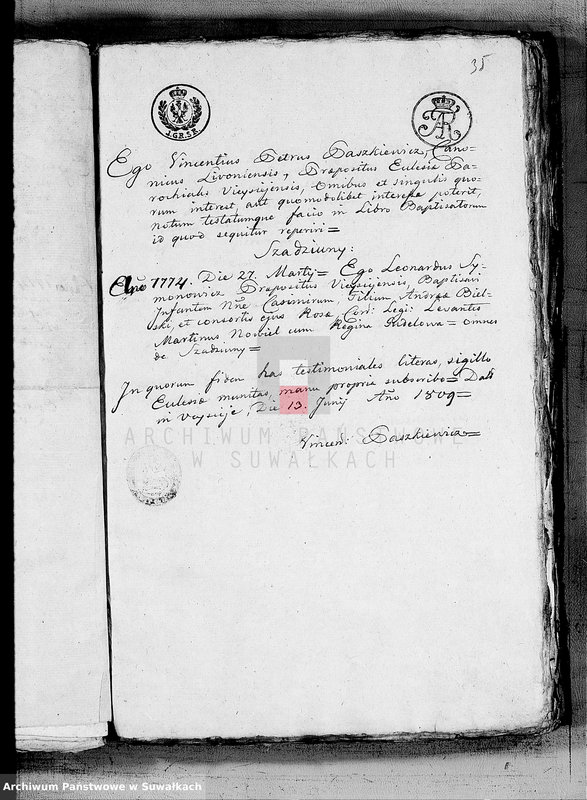 35
J.GR.5R.
Ego Vincentius Petrus Paszkiewicz, Cano-
nicus Livoniensis, Præpositus Eulesiæ Pa-
rochialis Vieysiejensis, Omnibus et singulis quo-
rum interest, aut quomodolibet interesse poterit,
notum testatumque facio in Libro Baptisatorum
id quod sequitur reperiri=
Szadziuny:
Año 1774. Die 27. Martij= Ego Leonardus Sy-
monowicz Præpositus Vieysiejensis, Baptisavi
Infantem Nñe Casimirum, Filium Andreæ Biel-
ski, et consortis ejus Rosæ, Con: Legi: Levantes
Martinus Nowiel cum Regina Kisielowa= omnes
de Szadziuny=
In quorum fidem has testimoniales literas, sigillo
Eulesiæ munitas, manu propria subscribo= Dat:
in Veysieje, Die 13. Junij Año 1809=
Vincen: Paszkiewicz=
ARCHIWUM PAŃSTWOWE
W SUWAŁKACH
Archiwum Państwowe w Suwałkach